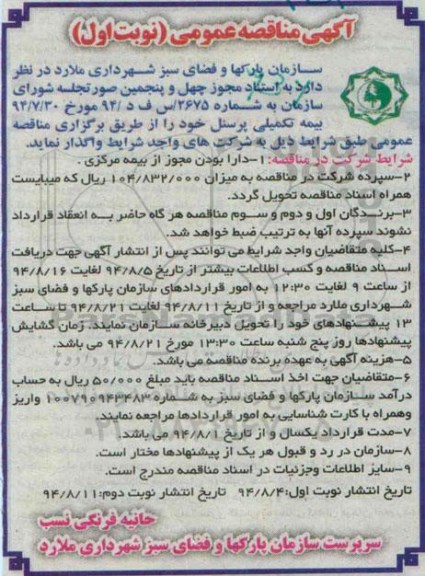 آگهی مناقصه عمومی (نوبت اول)
سازمان پارکها و فضای سبز شهرداری ملارد در نظر
دارد به استناد مجوز چهل و پنجمین صورتجلسه شورای
سازمان به شماره ۲۶۷۵/س ف د /۹۴ مورخ ۹۴/۷/۳۰
بیمه تکمیلی پرسنل خود را از طریق برگزاری مناقصه
عمومی طبق شرایط ذیل به شرکت های واجد شرایط واگذار نماید.
شرایط شرکت در مناقصه: ۱-دارا بودن مجوز از بیمه مرکزی .
۲-سپرده شرکت در مناقصه به میزان ۱۰۴/۸۳۲/۰۰۰ ریال که میبایست
همراه اسناد مناقصه تحویل گردد.
۳-برندگان اول و دوم و سوم مناقصه هر گاه حاضر به انعقاد قرارداد
نشوند سپرده آنها به ترتیب ضبط خواهد شد.
۴-کلیه متقاضیان واجد شرایط می توانند پس از انتشار آگهی جهت دریافت
اسناد مناقصه و کسب اطلاعات بیشتر از تاریخ ۹۴/۸/۵ لغایت ۹۴/۸/۱۶
از ساعت ۹ لغایت ۱۲:۳۰ به امور قراردادهای سازمان پارکها و فضای سبز
شهرداری ملارد مراجعه و از تاریخ ۹۴/۸/۱۱ لغایت ۹۴/۸/۲۱ تا ساعت
۱۳ پیشنهادهای خود را تحویل دبیرخانه سازمان نمایند. زمان گشایش
پیشنهادها روز پنج شنبه ساعت ۱۳:۳۰ مورخ ۹۴/۸/۲۱ می باشد.
۵-هزینه آگهی به عهده برنده مناقصه می باشد.
۶-متقاضیان جهت اخذ اسناد مناقصه باید مبلغ ۵۰/۰۰۰ ریال به حساب
درآمد سازمان پارکها و فضای سبز به شماره ۱۰۰۷۹۰۹۴۳۴۸۳ واریز
وهمراه با کارت شناسایی به امور قراردادها مراجعه نمایند.
۷-مدت قرارداد یکسال و از تاریخ ۹۴/۸/۱ می باشد.
۸-سازمان در رد و قبول هر یک از پیشنهادها مختار است.
۹-سایر اطلاعات وجزئیات در اسناد مناقصه مندرج است.
تاریخ انتشار نوبت اول:۹۴/۸/۴ تاریخ انتشار نوبت دوم:۹۴/۸/۱۱
حانیه فرنگی نسب
سرپرست سازمان پارکها و فضای سبز شهرداری ملارد